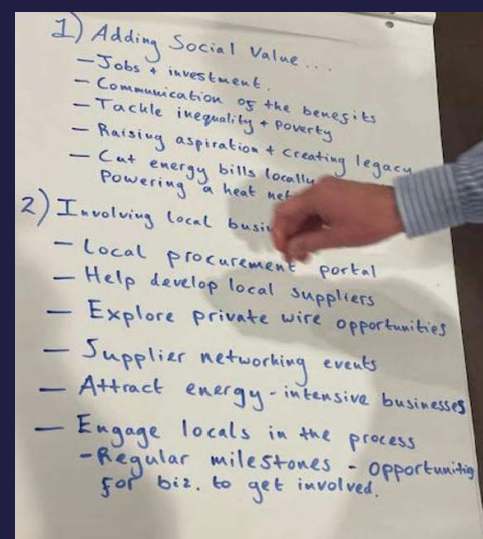 1) Adding Social Value...
- Jobs + investment.
- Communication of the benefits
- Tackle inequality + poverty
- Raising aspiration + creating legacy
- Cut energy bills locally
Powering a heat
2) Involving local
- Local procurement portal
- Help develop local suppliers
- Explore private wire opportunities
- Supplier networking events
- Attract energy-intensive businesses
- Engage locals in the process
- Regular milestones - opportunities
for biz. to get involved.